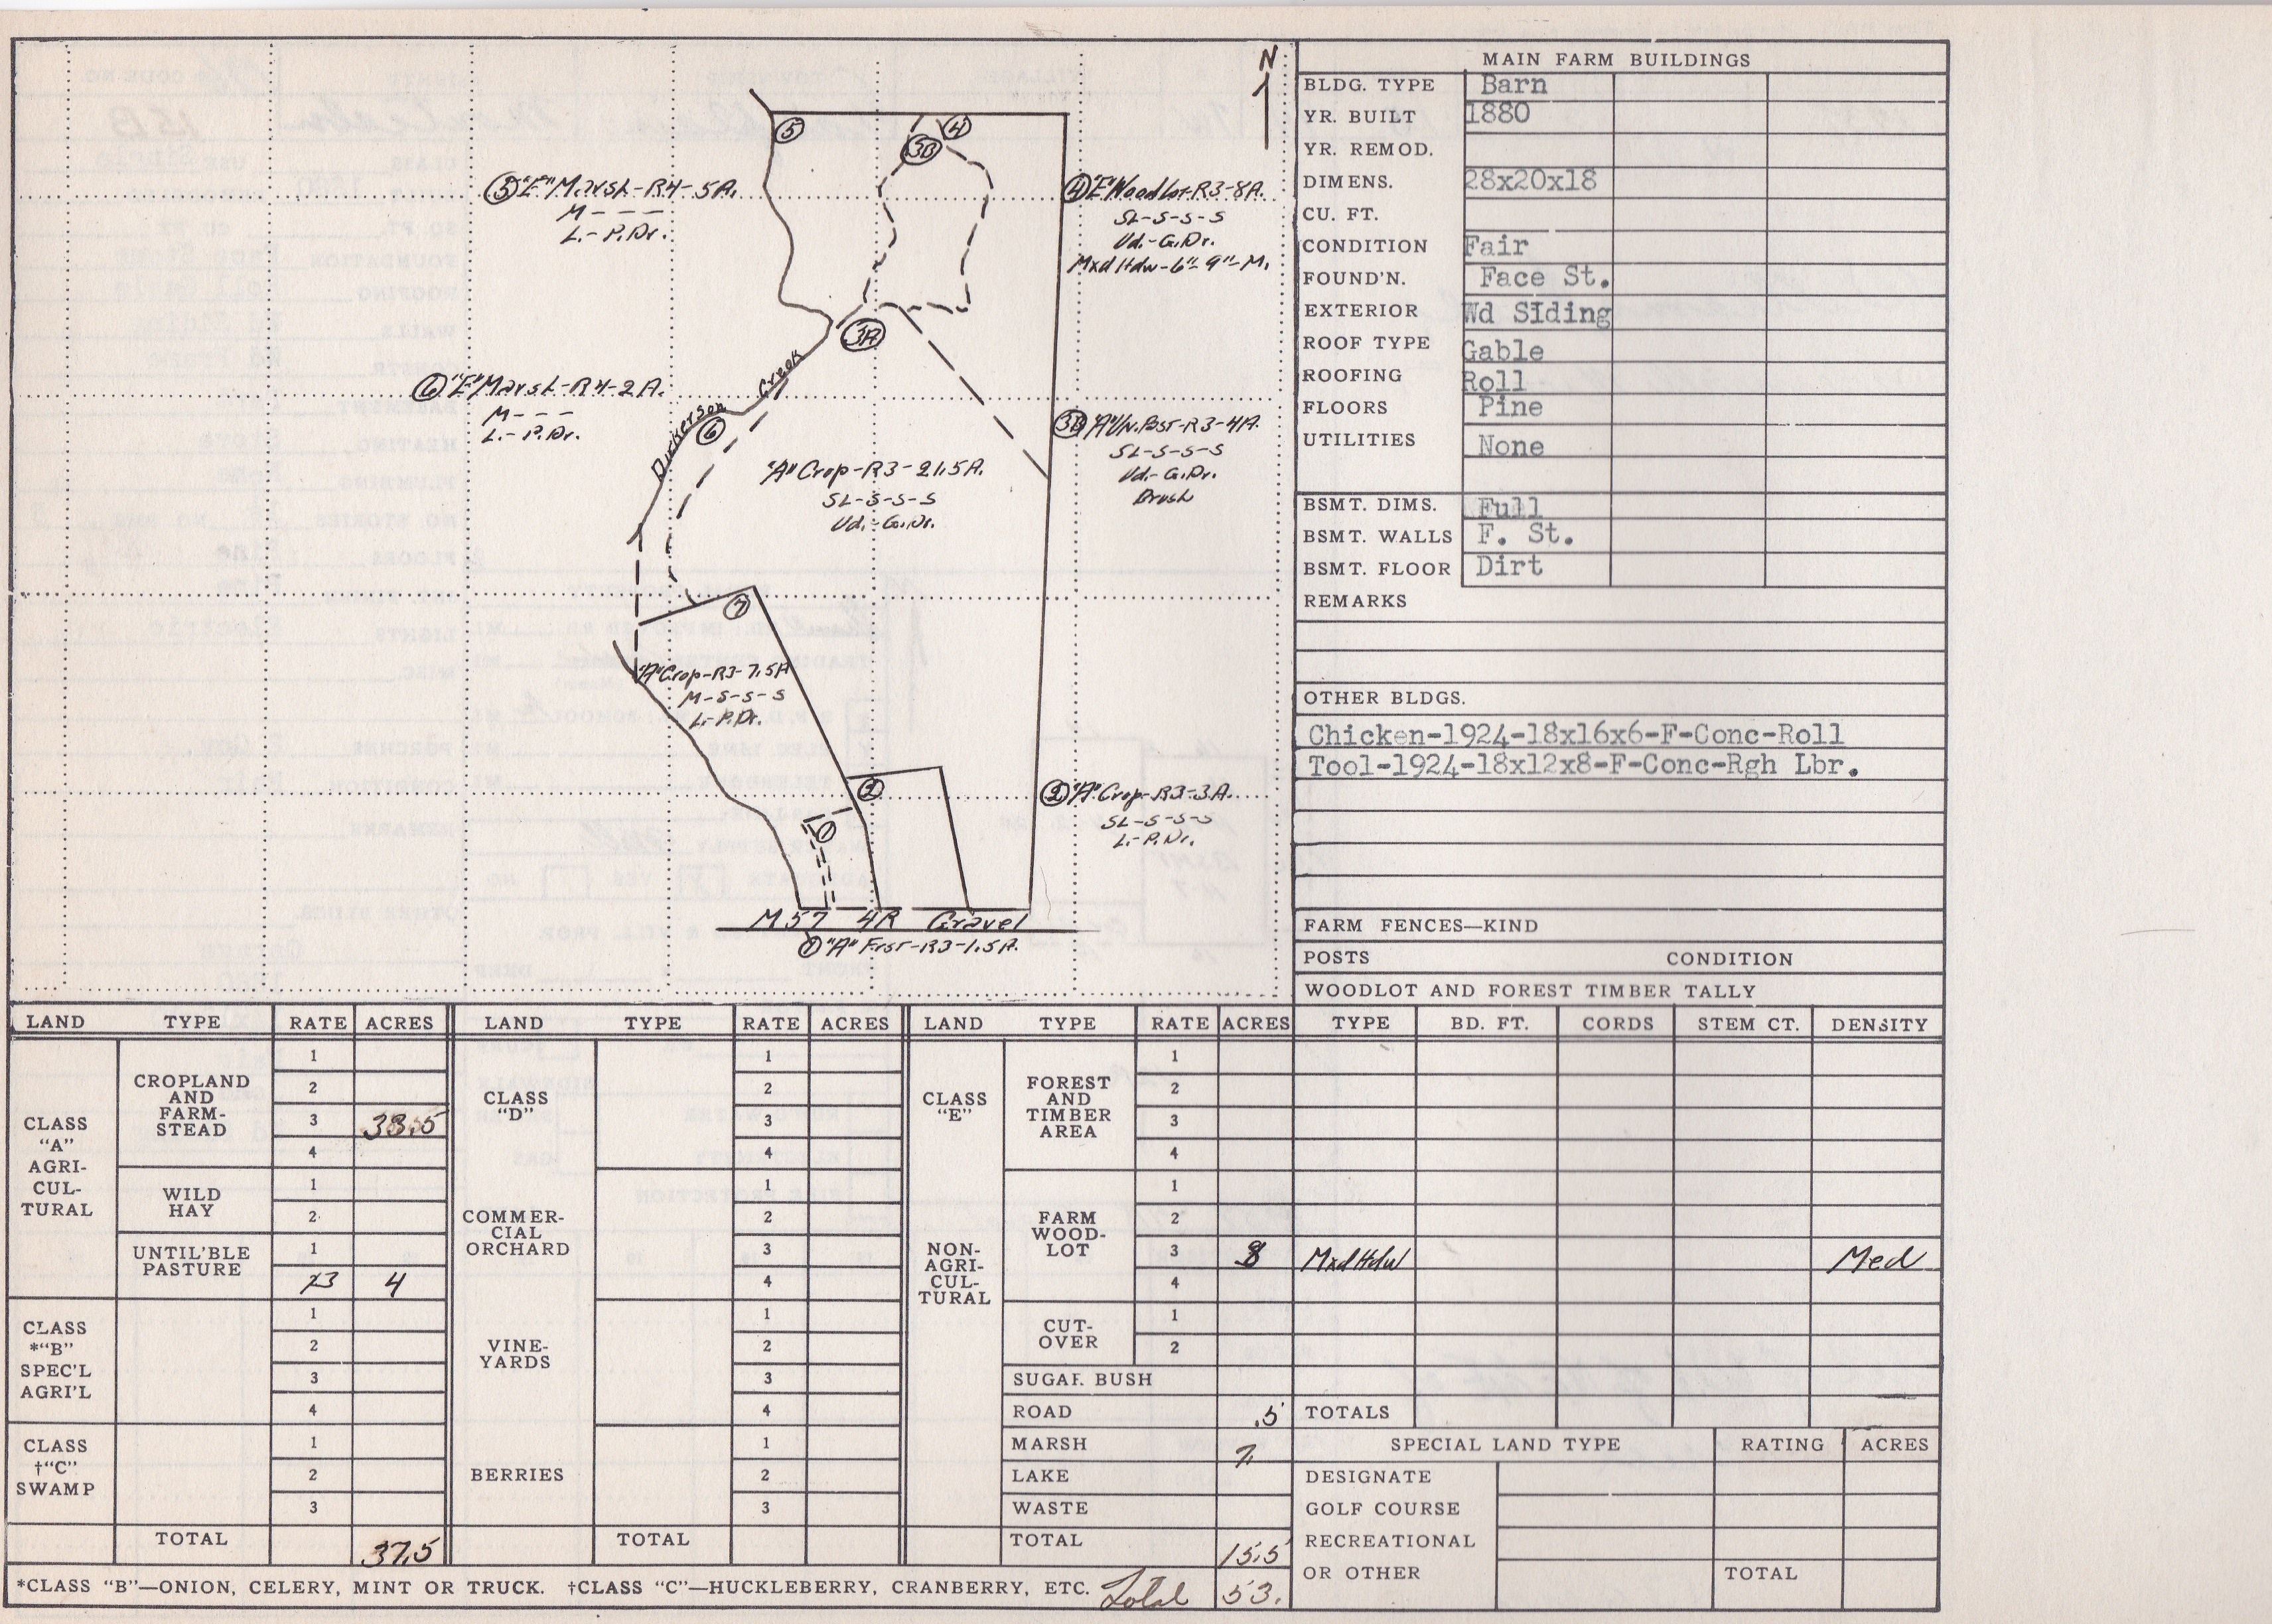 N
⑤
④
③B
⑤ "E" Marsh-R4-5A.
M - - -
L.-P.Dr.
④ "E" Woodlot-R3-8A.
SL-S-S-S
Ud.-G.Dr.
Mxd Hdw-6"-9"-M.
③A
Dickerson Creek
⑥ "E" Marsh-R4-2A.
M - - -
L.-P.Dr.
⑥
③B "A" Un.Pst-R3-4A.
SL-S-S-S
Ud.-G.Dr.
Brush
"A" Crop-R3-21.5A.
SL-S-S-S
Ud.-G.Dr.
⑦
"A" Crop-R3-7.5A
M-S-S-S
L.-P.Dr.
②
② "A" Crop-R3-3A.
SL-S-S-S
L.-P.Dr.
①
M57 4R Gravel
① "A" Frst-R3-1.5A.
MAIN FARM BUILDINGS
BLDG. TYPE Barn
YR. BUILT 1880
YR. REMOD.
DIMENS. 28x20x18
CU. FT.
CONDITION Fair
FOUND'N. Face St.
EXTERIOR Wd Siding
ROOF TYPE Gable
ROOFING Roll
FLOORS Pine
UTILITIES None
BSMT. DIMS. Full
BSMT. WALLS F. St.
BSMT. FLOOR Dirt
REMARKS
OTHER BLDGS.
Chicken-1924-18x16x6-F-Conc-Roll
Tool-1924-18x12x8-F-Conc-Rgh Lbr.
FARM FENCES—KIND
POSTS CONDITION
WOODLOT AND FOREST TIMBER TALLY
LAND TYPE RATE ACRES LAND TYPE RATE ACRES LAND TYPE RATE ACRES TYPE BD. FT. CORDS STEM CT. DENSITY
CLASS
"A"
AGRI-
CUL-
TURAL
CROPLAND
AND
FARM-
STEAD
1
2
3 33.5
4
WILD
HAY
1
2
UNTIL'BLE
PASTURE
1
3 4
CLASS
*"B"
SPEC'L
AGRI'L
1
2
3
4
CLASS
†"C"
SWAMP
1
2
3
TOTAL 37.5
CLASS
"D"
1
2
3
4
COMMER-
CIAL
ORCHARD
1
2
3
4
VINE-
YARDS
1
2
3
4
BERRIES
1
2
3
TOTAL
CLASS
"E"
NON-
AGRI-
CUL-
TURAL
FOREST
AND
TIMBER
AREA
1
2
3
4
FARM
WOOD-
LOT
1
2
3 8 Mxd Hdw Med
4
CUT-
OVER
1
2
SUGAR BUSH
ROAD .5
MARSH 7.
LAKE
WASTE
TOTAL 15.5
TOTALS
SPECIAL LAND TYPE RATING ACRES
DESIGNATE
GOLF COURSE
RECREATIONAL
OR OTHER TOTAL
*CLASS "B"—ONION, CELERY, MINT OR TRUCK. †CLASS "C"—HUCKLEBERRY, CRANBERRY, ETC. Total 53.